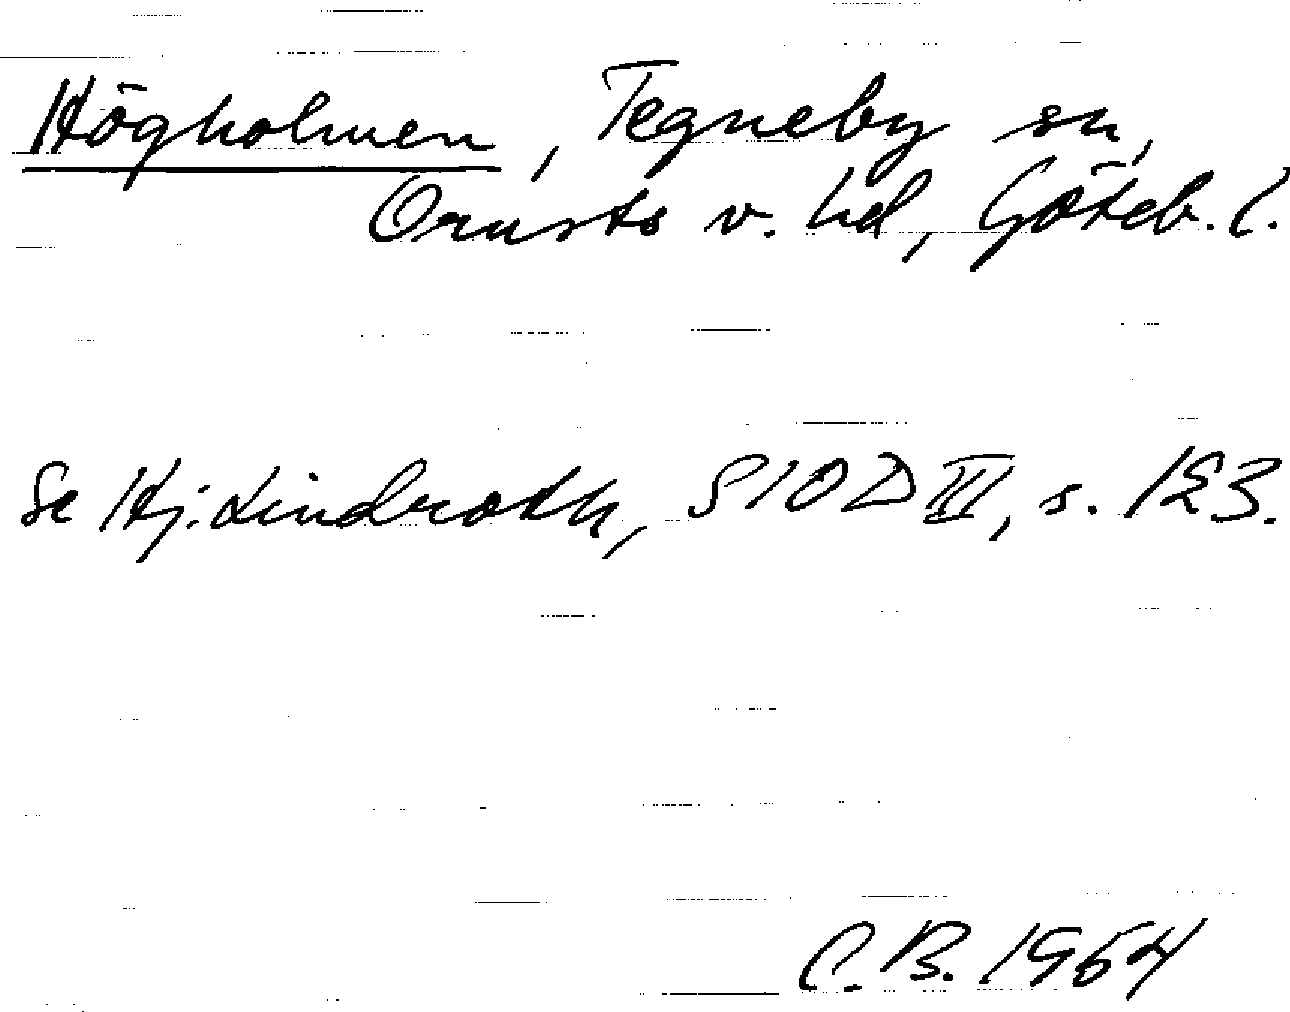 Högholmen, Tegneby sn,
Orusts v. hd, Göteb. l.
Se Hj. Lindroth, SIOD III, s. 123.
C.B. 1964